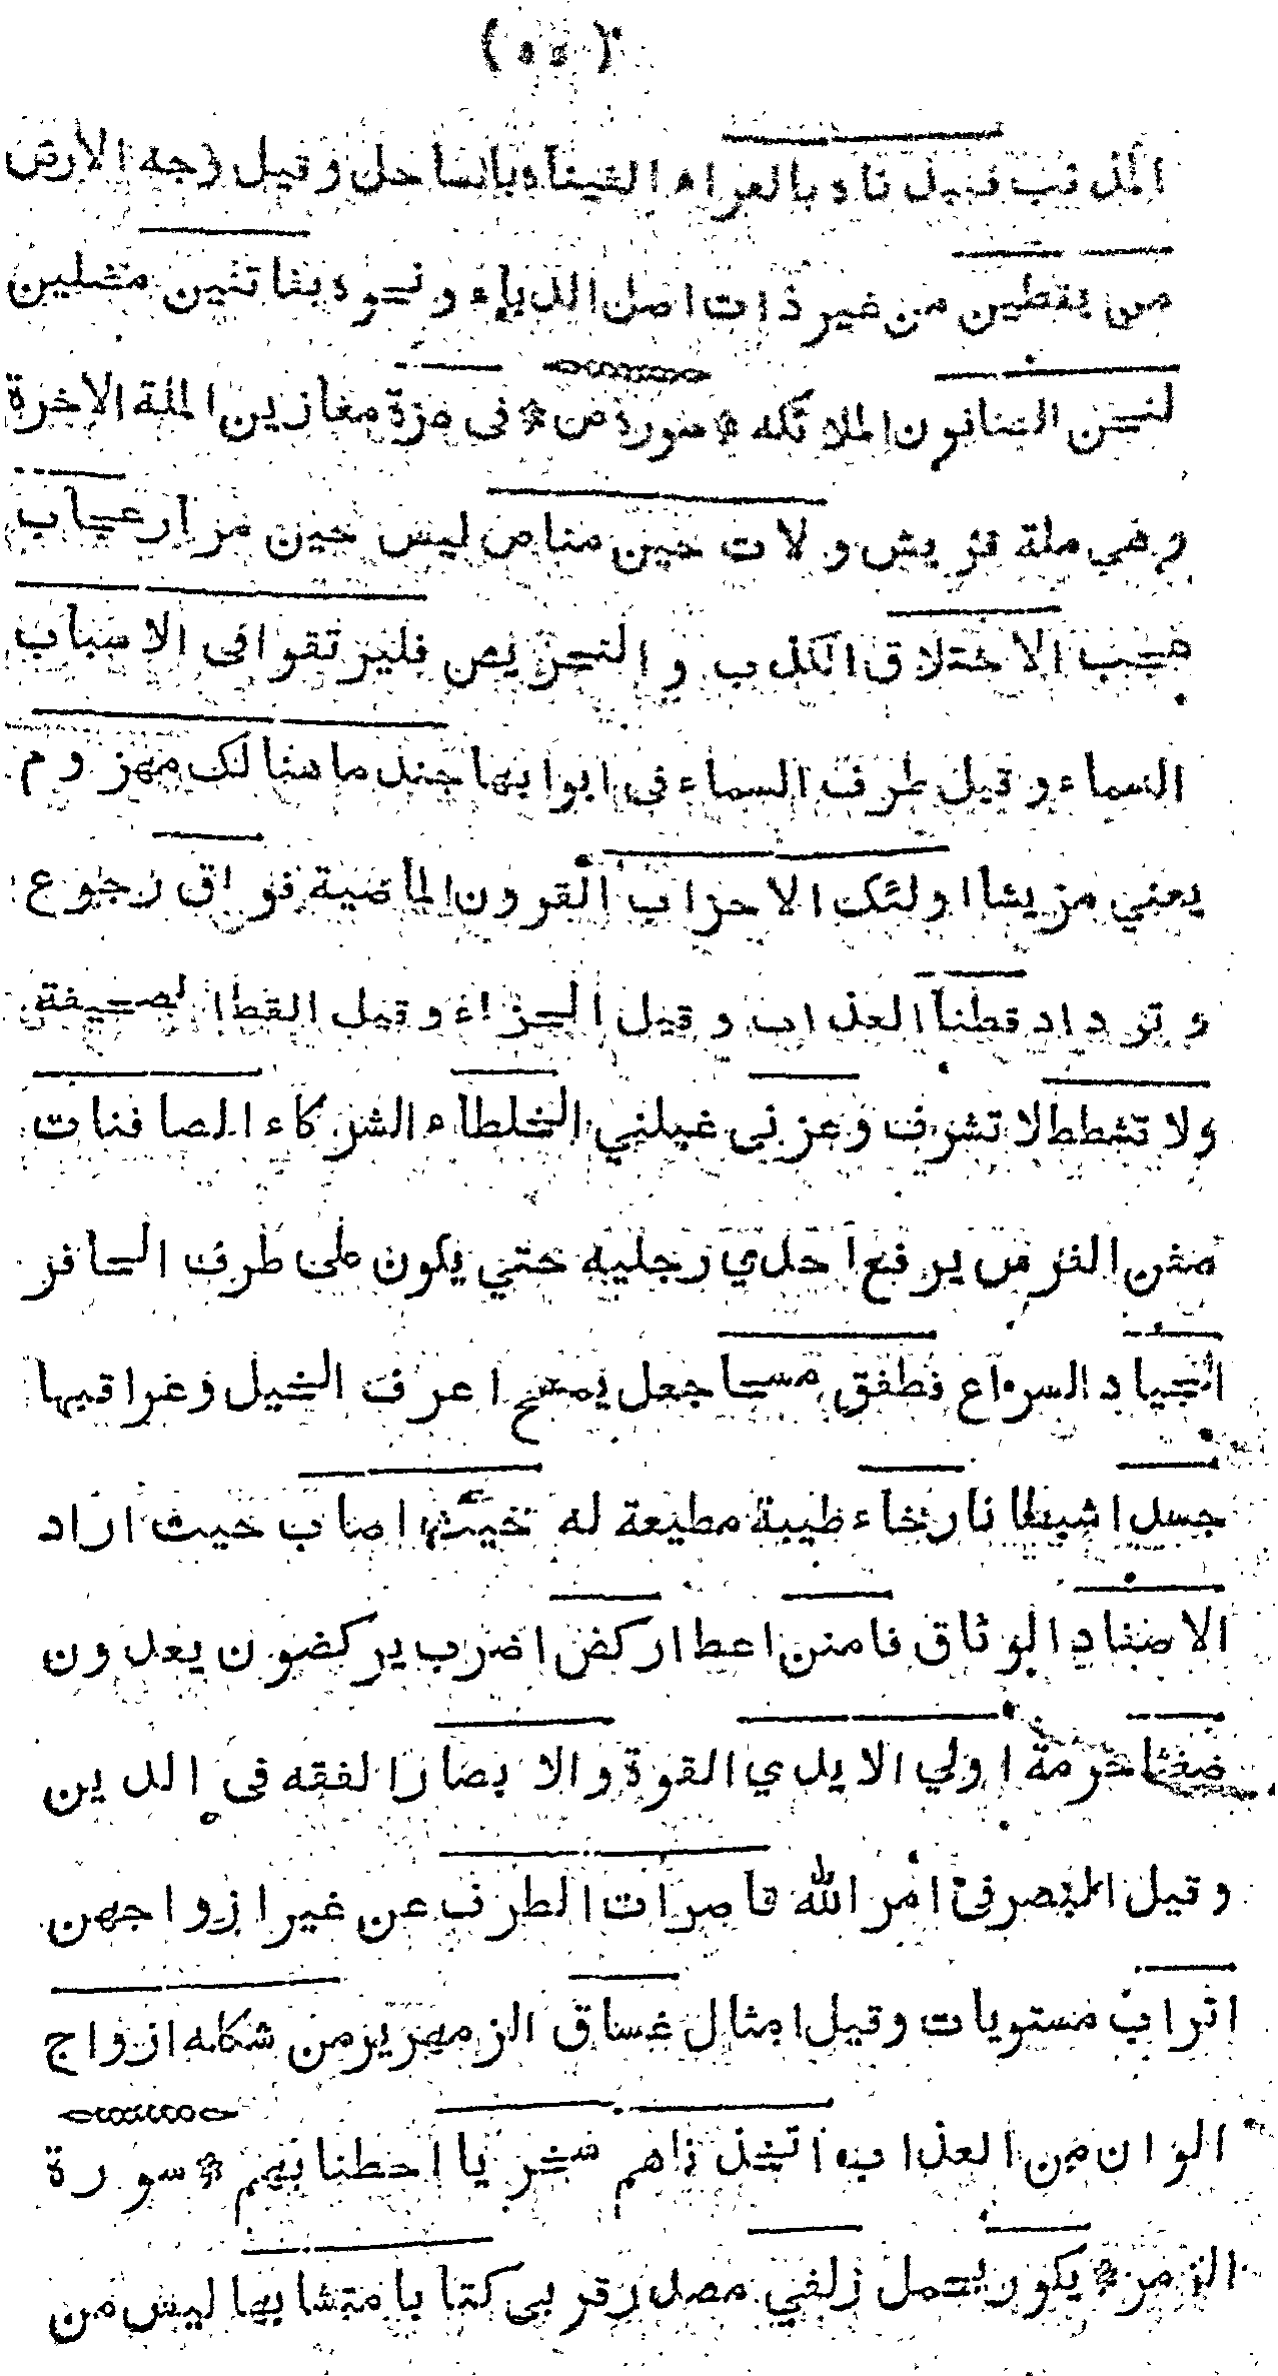 المذنب فنبذناه بالعراء القيناه بالساحل وقيل وجه الارض
من يقطين من غير ذات اصل الدباء ونحوه بفاتنين مضلين
لنحن الصافون الملائكه * سورة ص * في عزة معازين الملة الاخرة
وهي ملة قريش ولات حين مناص ليس حين فرار عجاب
عجب الاختلاق الكذب والتخريص فليرتقوا فى الاسباب
السماء وقيل طرف السماء فى ابوابها جند ما هنالك مهزوم
يعني قريشا اولئك الاحزاب القرون الماضية فواق رجوع
وترداد قطنا العذاب وقيل الجزاء وقيل القط الصحيفة
ولا تشطط لا تشرف وعزنى غلبني الخلطاء الشركاء الصافنات
صفن الفرس يرفع احدي رجليه حتي يكون على طرف الحافر
الجياد السراع فطفق مسحا جعل يمسح اعرف الخيل وعراقيبها
جسدا شيطانا رخاء طيبة مطيعة له حيث اصاب حيث اراد
الاصفاد الوثاق فامنن اعط اركض اضرب يركضون يعدون
ضغثا حزمة اولي الايدي القوة والابصار الفقه فى الدين
وقيل المبصر فى امر الله قاصرات الطرف عن غير ازواجهن
اتراب مستويات وقيل امثال غساق الزمهرير من شكله ازواج
الوان من العذاب اتخذناهم سخريا احطنا بهم * سورة
الزمر * يكور يحمل زلفي مصدر قربى كتابا متشابها ليس من